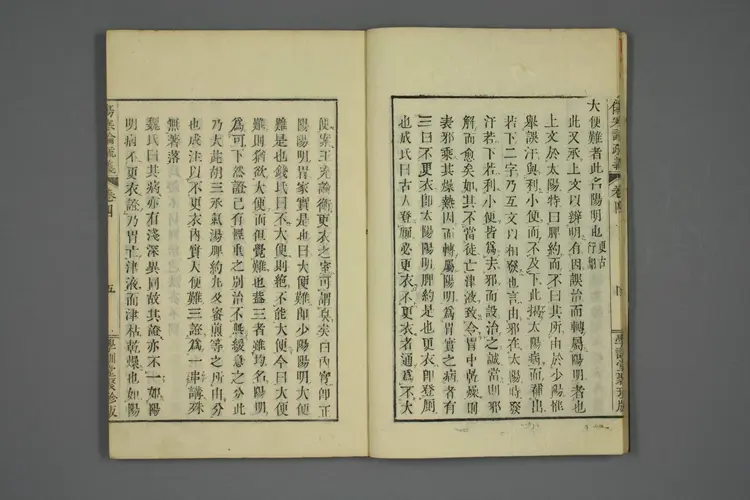 傷寒論疏義 卷四
學訓堂聚珍版
大便難者此名陽明也更古行翻
此又承上文以辨明有因誤治而轉屬陽明者也
上文於太陽特曰脾約而不曰其所由於少陽惟
舉誤汗與利小便而不及下此揭太陽病而補出
若下二字乃互文以相發也言由邪在太陽時發
汗若下若利小便皆爲去邪而設治之誠當則邪
解而愈矣如其不當徒亡津液致令胃中乾燥則
表邪乘其燥熱因而轉屬陽明爲胃實之病者有
三曰不更衣卽太陽陽明脾約是也更衣卽登廁
也成氏曰古人登廁必更衣不更衣者通爲不大
便案王充論衡更衣之室可謂臭矣曰內實卽正
陽陽明胃家實是也曰大便難卽少陽陽明大便
難是也錢氏曰不大便則絕不能大便今曰大便
難則猶欲大便而但覺難也蓋三者雖均名陽明
爲可下然證已有輕重之別治不無緩急之分此
乃大此胡三承氣湯脾約丸及蜜煎等之所由分
也成注以不更衣內實大便難三證爲一串講殊
無著落
魏氏曰其病亦有淺深異同故其證亦不一如陽
明病不更衣證乃胃亡津液而津枯乾燥也如陽
傷寒論疏義 卷四 五
學訓堂聚珍版